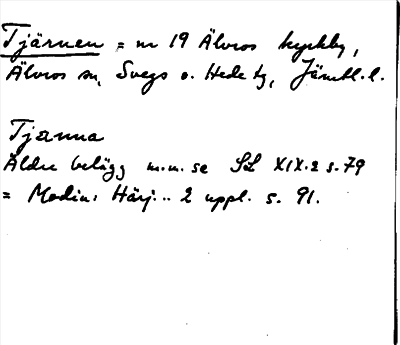 Tjärnen = nr 19 Älvros kyrkby,
Älvros sn, Svegs o. Hede tg, Jämtl. l.
Tjänna
Äldre belägg m.m. se SL XIX.2 s. 79
= Modin: Härj... 2 uppl. s. 91.